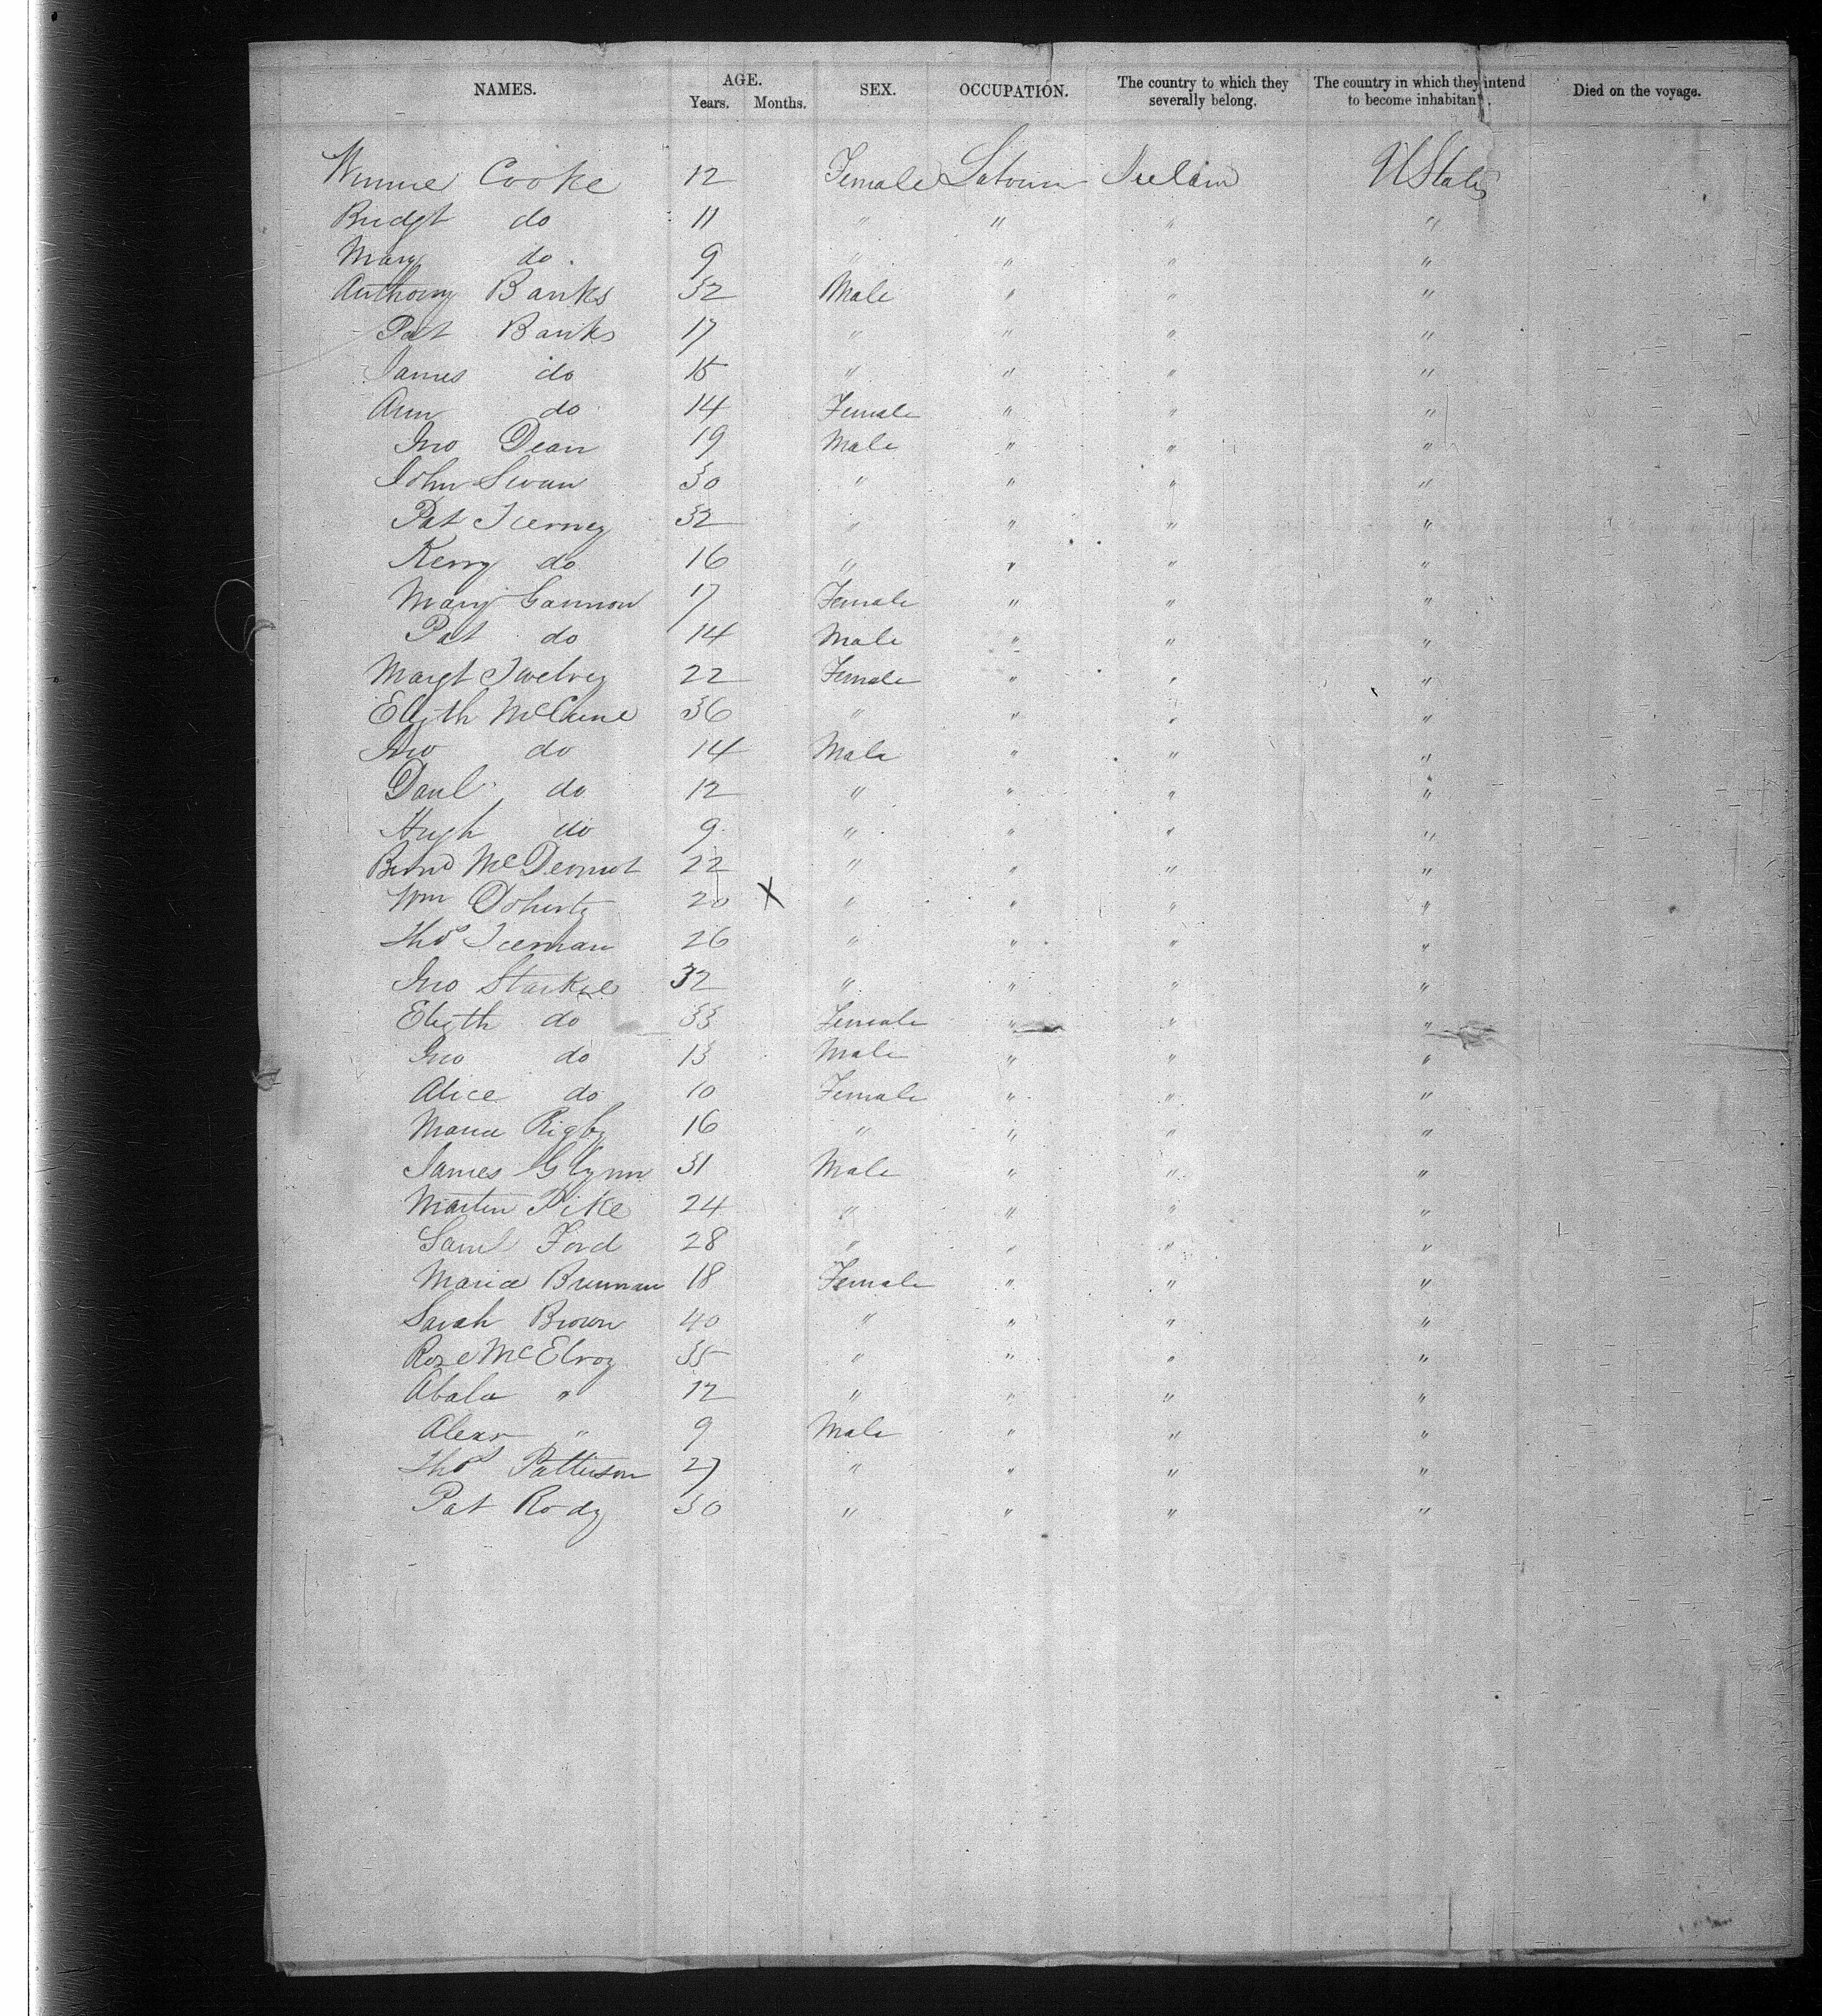 NAMES. AGE. Years. Months. SEX. OCCUPATION. The country to which they severally belong. The country in which they intend to become inhabitan . Died on the voyage.
Winnie Cooke 12 Female Laborer Ireland U States
Bridgt do 11 " " " "
Mary do 9 " " " "
Anthony Banks 32 Male " " "
Pat Banks 17 " " " "
James do 15 " " " "
Ann do 14 Female " " "
Jno Dean 19 Male " " "
John Swan 30 " " " "
Pat Tierney 32 " " " "
Kerry do 16 " " " "
Mary Gannon 17 Female " " "
Pat do 14 Male " " "
Margt 22 Female " " "
Elizth 36 " " " "
Jno do 14 Male " " "
Danl do 12 " " " "
Hugh do 9 " " " "
Bernd McDermot 22 " " " "
Wm Doherty 20 X " " " "
Thos 26 " " " "
Jno Starkie 32 " " " "
Elizth do 33 Female " " "
Jno do 13 Male " " "
Alice do 10 Female " " "
Maria Rigby 16 " " " "
James Glynn 31 Male " " "
Martin Pike 24 " " " "
Saml Ford 28 " " " "
Maria Brennan 18 Female " " "
Sarah Brown 40 " " " "
Rose McElroy 35 " " " "
Abala " 12 " " " "
Alexr " 9 Male " " "
Thos Patterson 27 " " " "
Pat Rody 30 " " " "